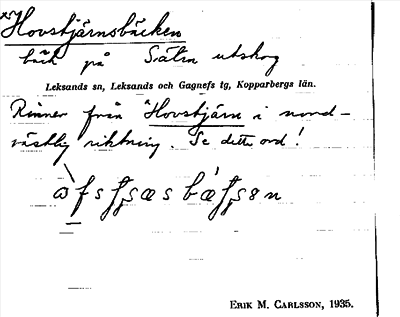 Hovstjärnsbäcken
bäck på Säters utskog
Leksands sn, Leksands och Gagnefs tg, Kopparbergs län.
Rinner från Hovstjärn i nord-
västlig riktning. Se detta ord!
ERIK M. CARLSSON, 1935.